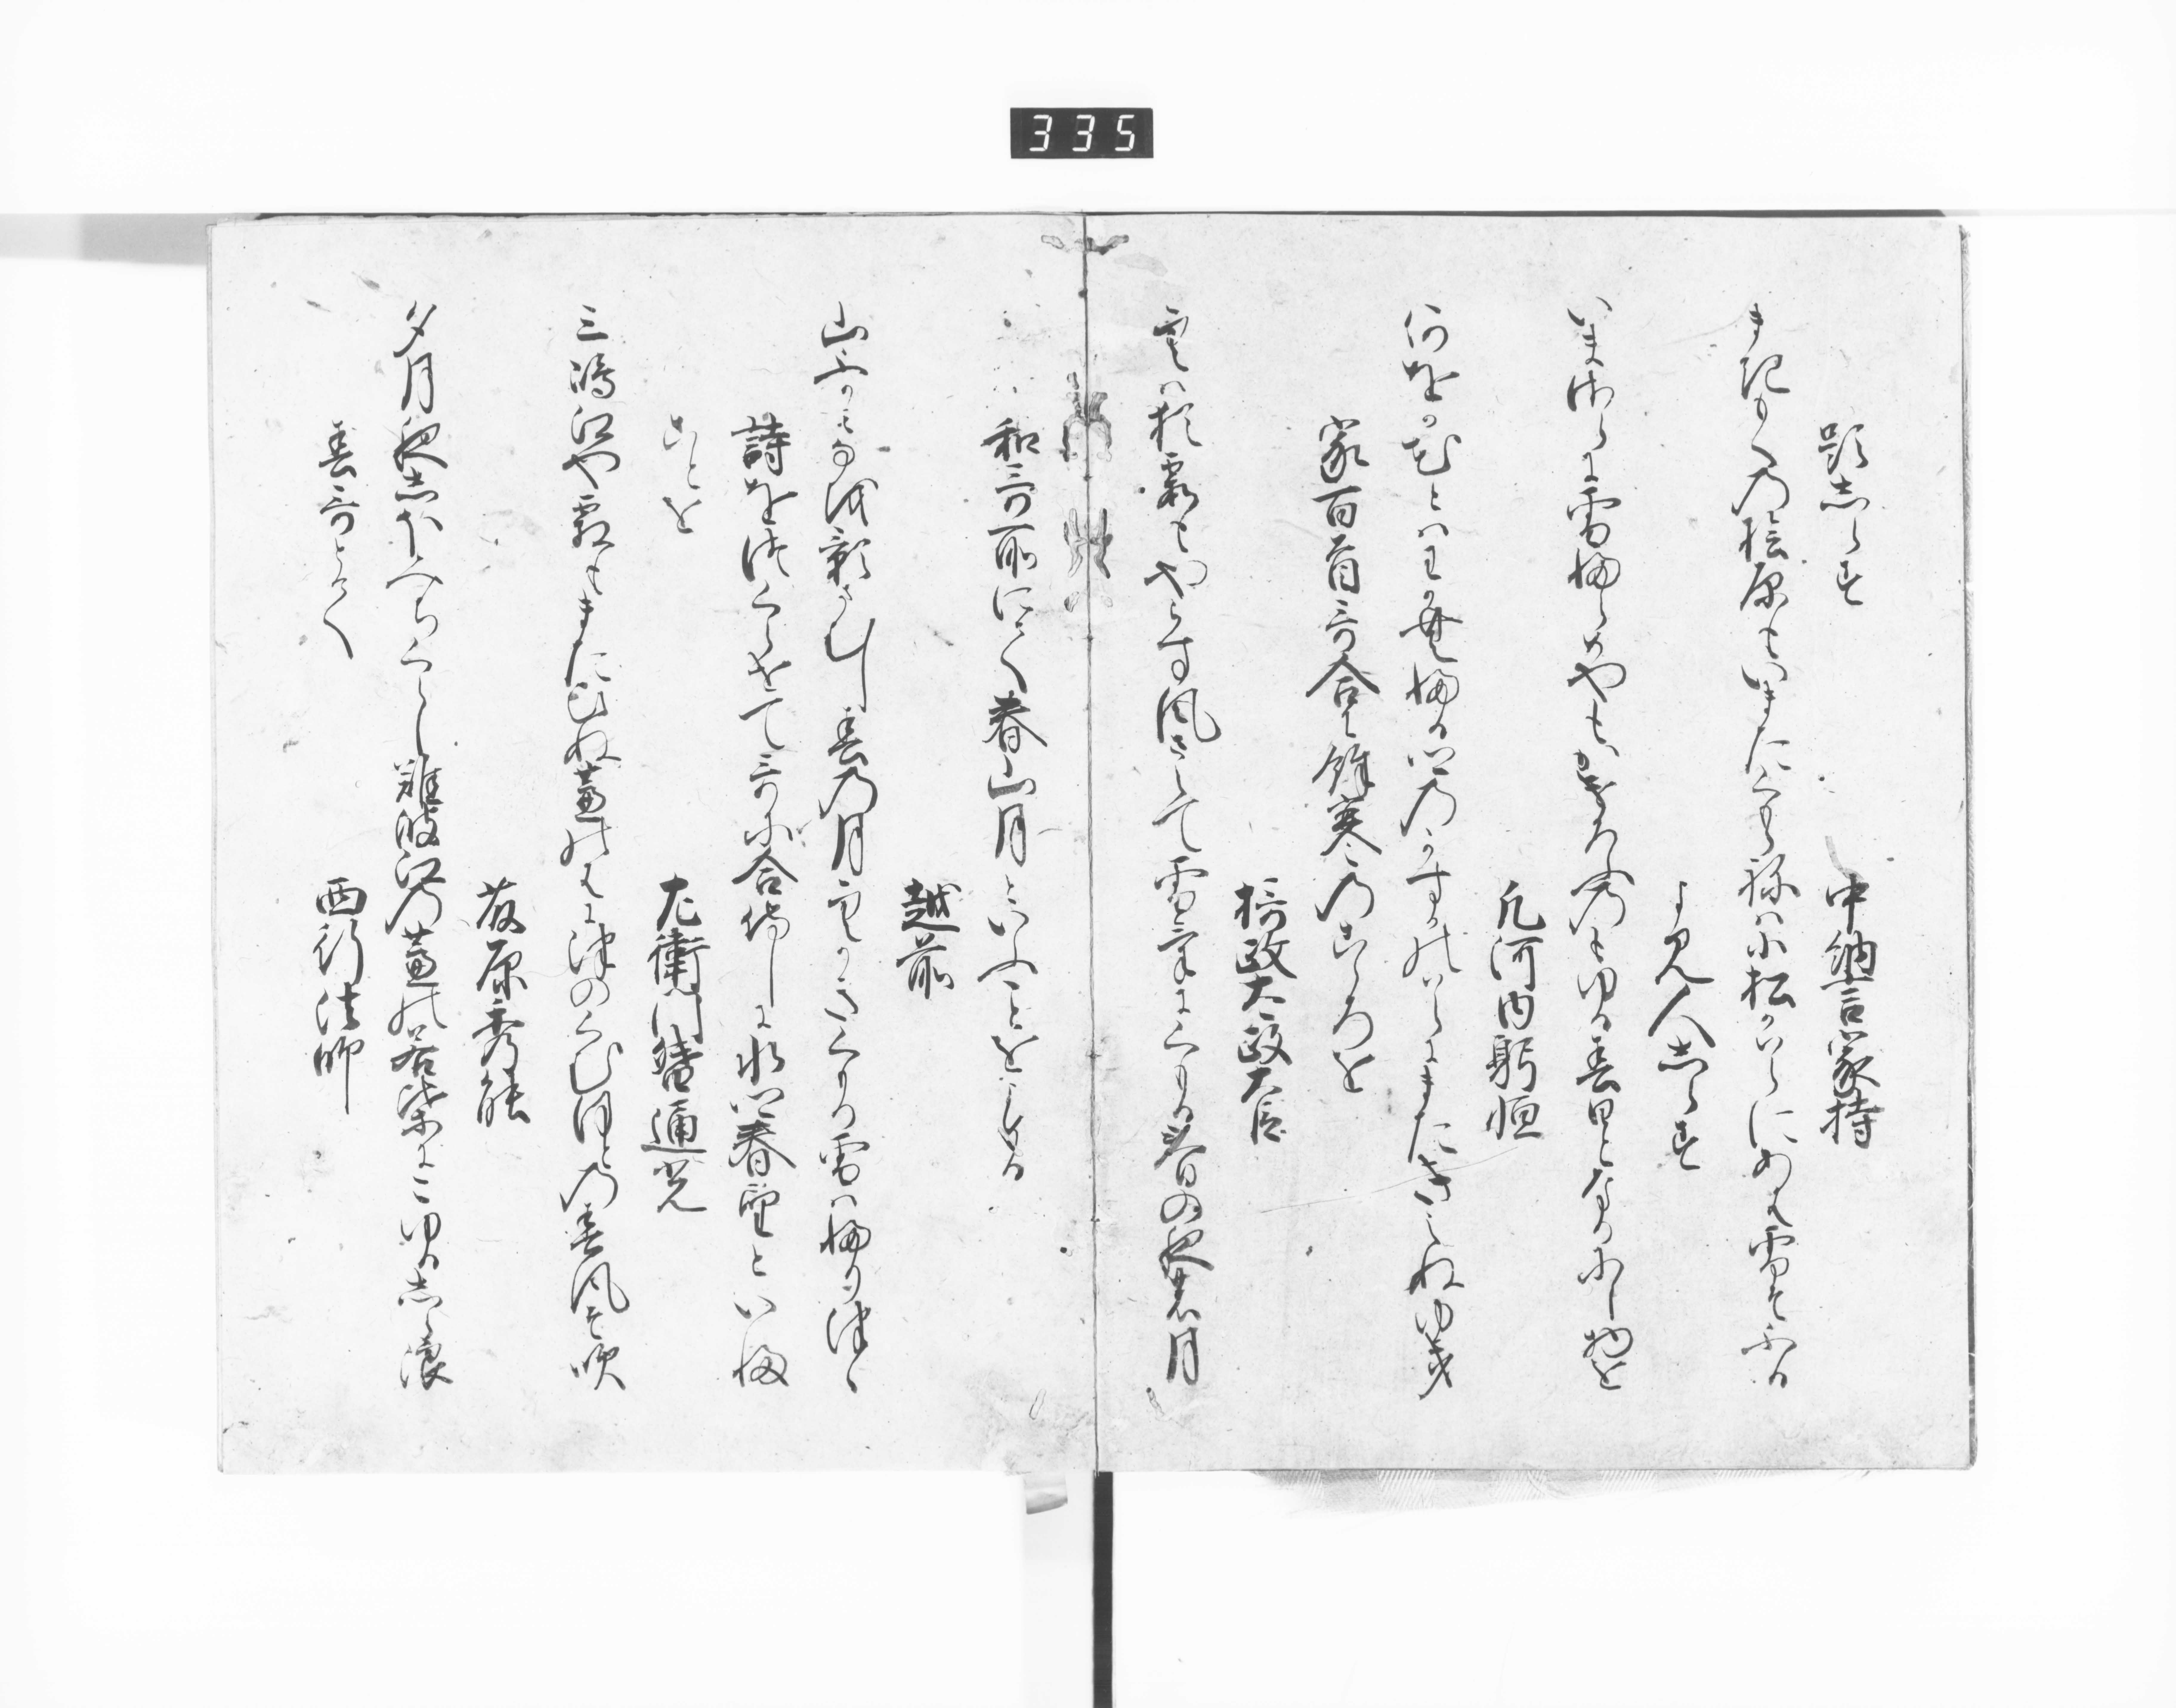 335
題志らす
中納言家持
まきもくの桧原もいまたくもらねは小松かはらにあは雪そふる
よみ人志らす
いまさらに雪ふらめやもかけろふのもゆる春日となりにし物を
凡河内躬恒
いつれをか花とはわかむふるさとのかすかのはらにまたきえぬゆき
家百首哥合に餘寒のこゝろを
摂政太政大臣
空は猶霞もやらす風さえて雪けにくもる春の夜の月
和哥所にて春山月といふことをよめる
越前
山ふかみ猶影さむし春の月空かきくもり雪はふりつゝ
詩をつくらせて哥に合侍しに水郷春望といふ
ことを
左衛門督通光
三嶋江や霜もまたひぬ蘆のはにつのくむほとの春風そ吹
藤原秀能
夕月夜志ほみちくらし難波江の蘆の若葉にこゆる志ら浪
春哥とて
西行法師